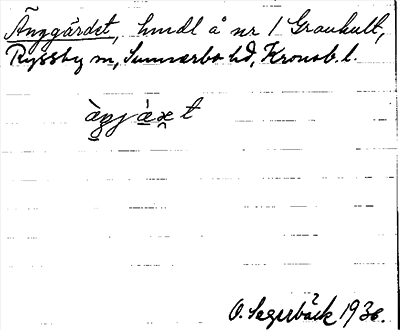 Änggärdet, hmdl å nr 1 Grauhult,
Ryssby sn, Sunnerbo hd, Kronob. l.
O. Sagerbäck 1936.